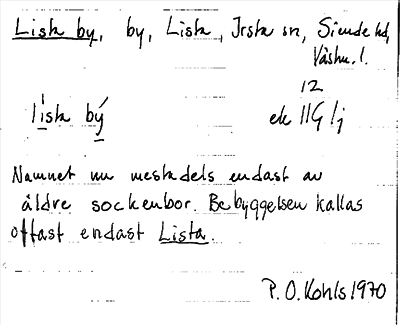 Lista by, by, Lista, Irsta sn, Siende hd,
Västm. l.
12
lista bý ek 11G 1j
Namnet nu mestadels endast av
äldre sockenbor. Bebyggelsen kallas
oftast endast Lista.
P. O. Kohls 1970